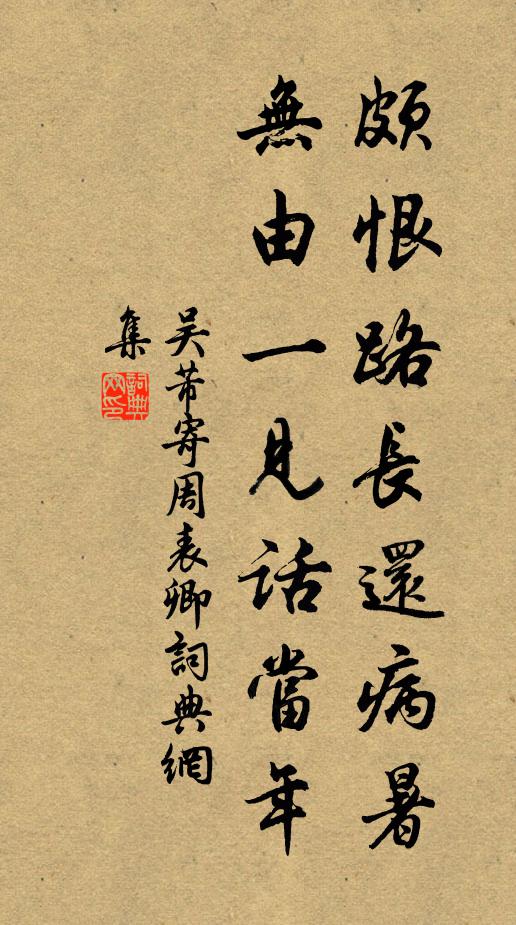 頗恨路長還病暑
無由一見話當年
吴芾寄周表卿詞典網
集
詞典網印